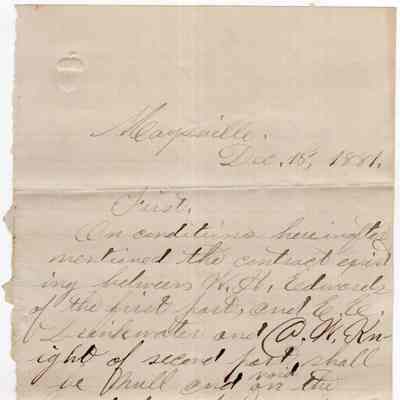 Maysville.
Dec. 18, 1881.
First.
On conditions hereinafter
mentioned the contract exist
ing between W. H. Edwards
of the first part, and E. C.
Drinkwater and A. W. Kn
ight of second part shall
be Null and void on the